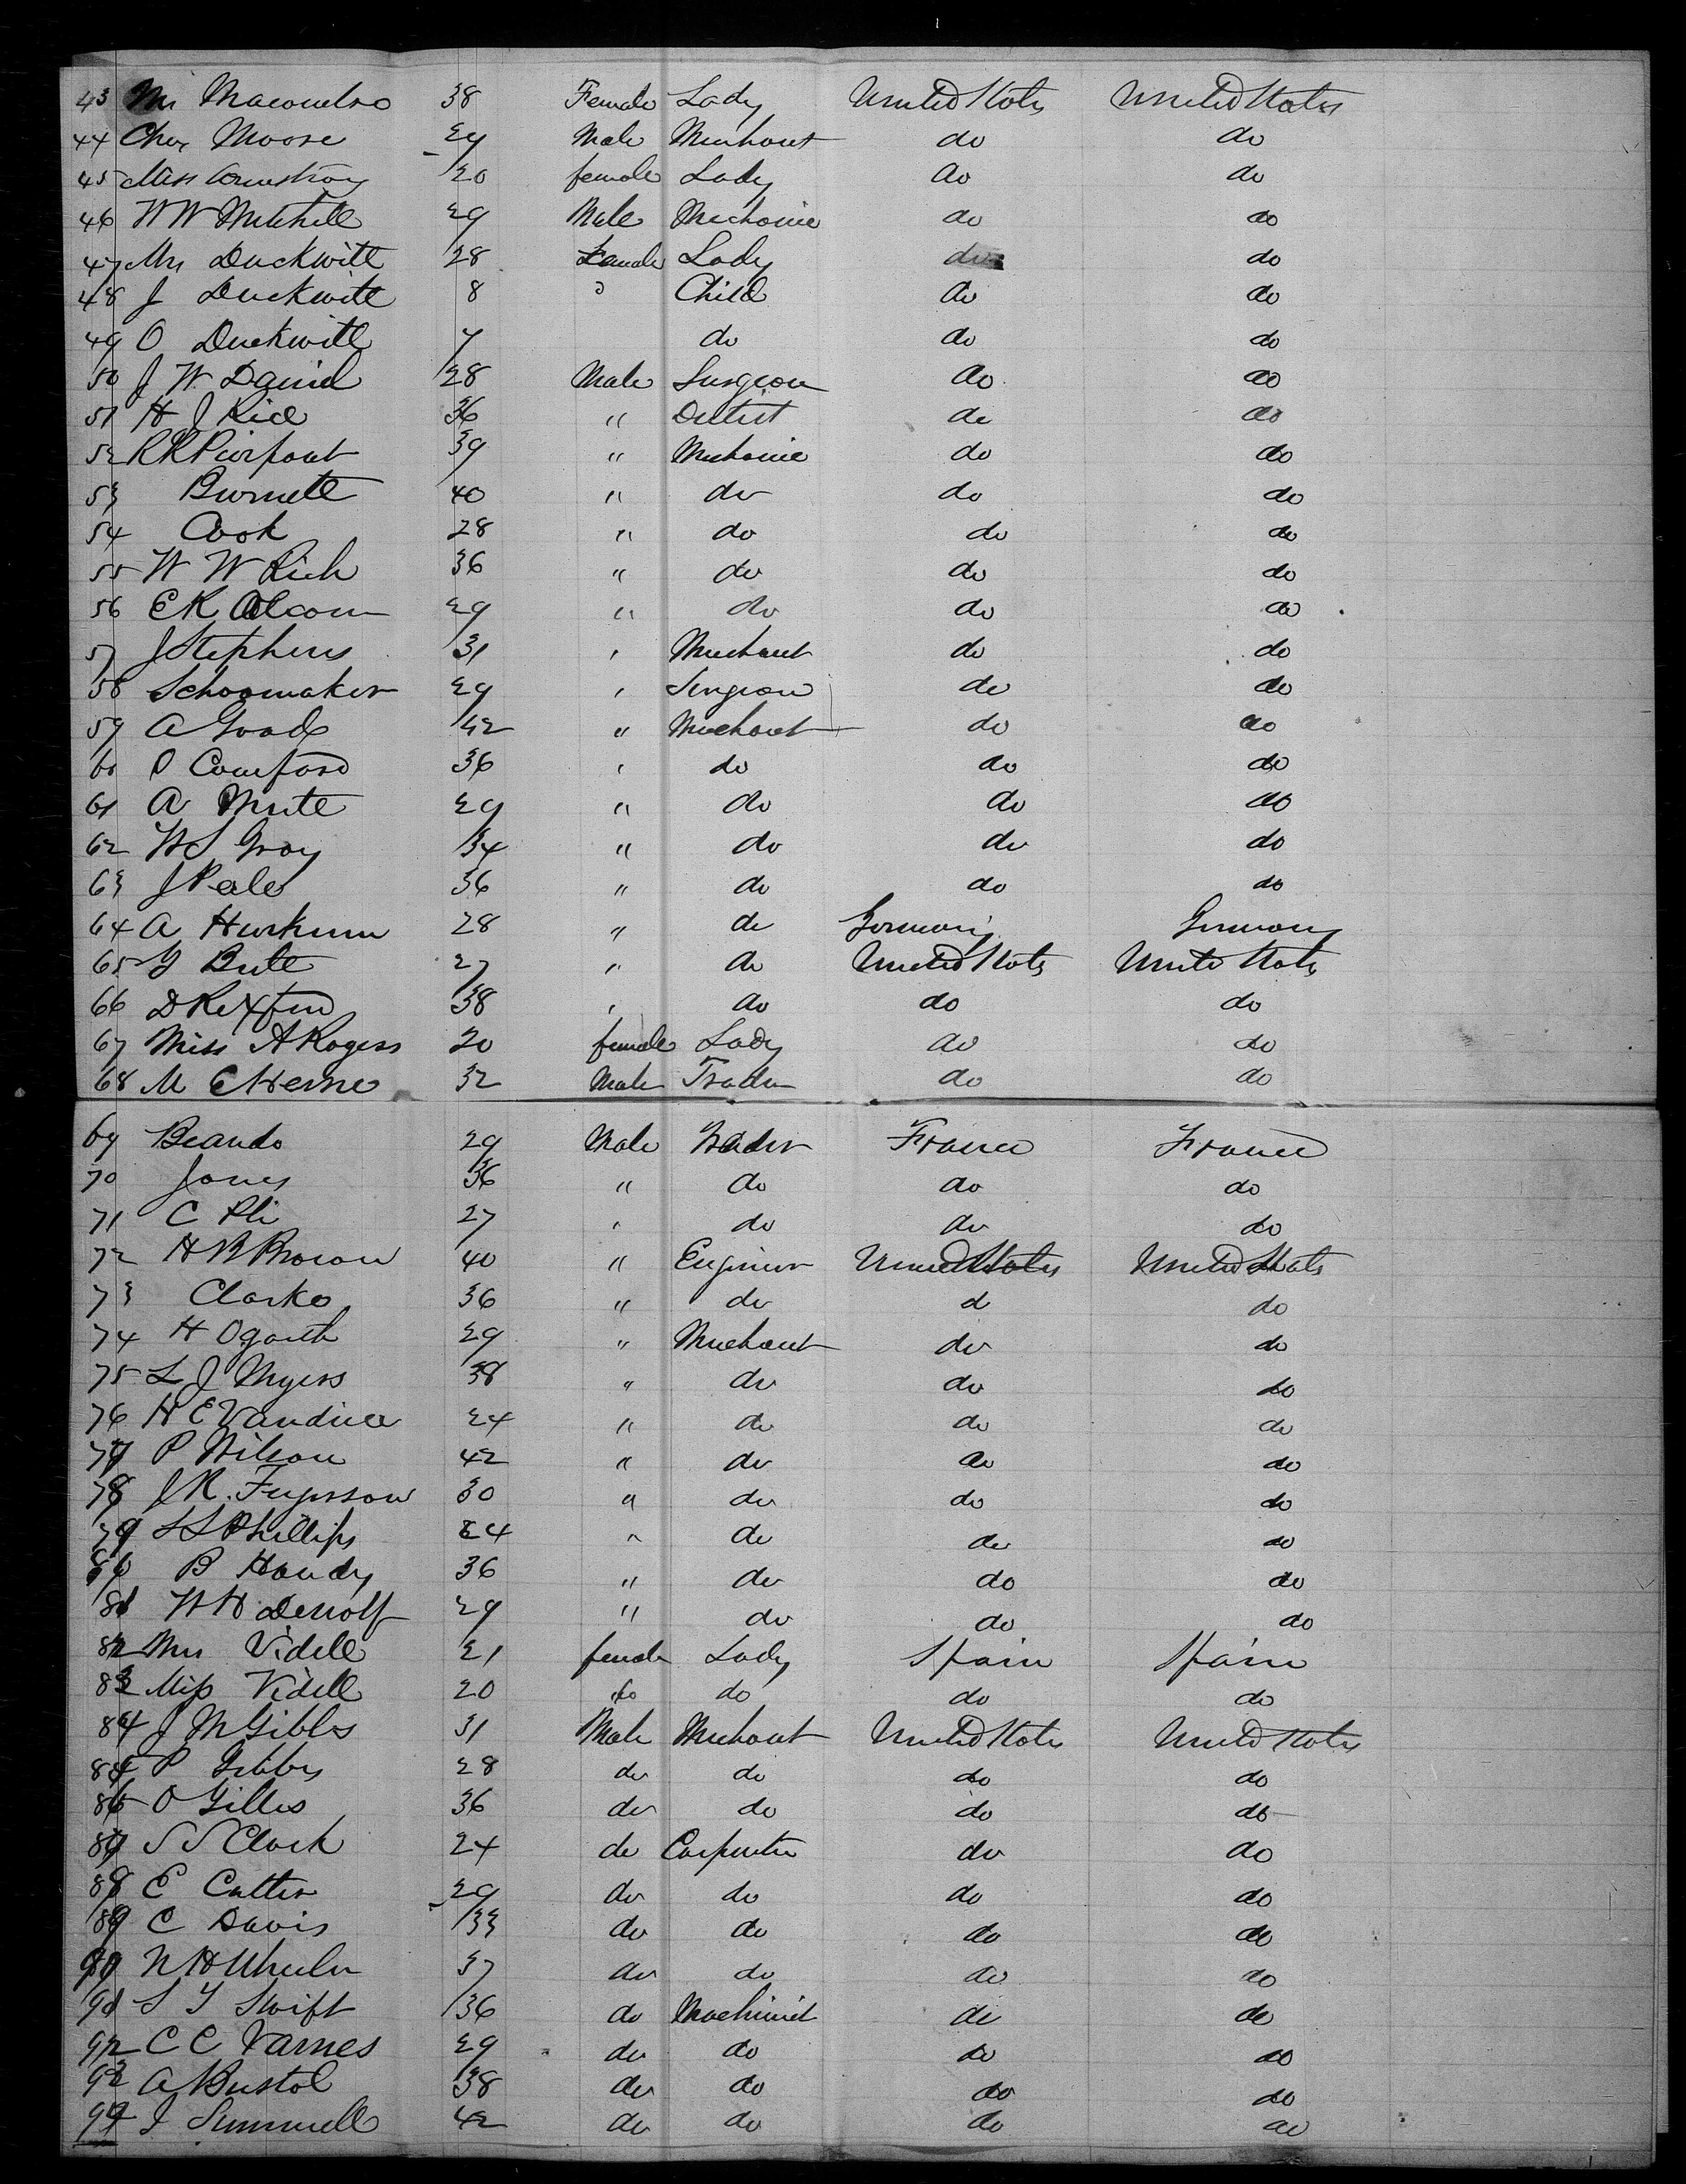 43 Mrs Macondro 38 Female Lady United States United States
44 Chas Moose 29 Male Merchant do do
45 Miss Armstrong 20 female Lady do do
46 W W Mitchell 29 Male Mechanic do do
47 Mrs Duckwitt 28 Female Lady do do
48 J Duckwitt 8 " Child do do
49 O Duckwitt 7 do do do
50 J W David 28 Male Surgeon do do
51 H J Rice 36 " Dentist do do
52 R R Pierpont 39 " Mechanic do do
53 Burnett 40 " do do do
54 Cook 28 " do do do
55 W W Rich 36 " do do do
56 E K Alcorn 29 " do do do
57 J Stephens 31 " Merchant do do
58 Schoomaker 29 " Surgeon do do
59 A Goods 42 " Merchant do do
60 P Comford 36 " do do do
61 A Mute 29 " do do do
62 W S Gray 34 " do do do
63 J Peale 36 " do do do
64 A 28 " do Germany Germany
65 G Bute 27 " do United States United States
66 D Rexford 38 " do do do
67 Miss A Rogers 20 female Lady do do
68 M C Herne 32 Male Trader do do
69 Beando 29 Male Trader France France
70 Jones 36 " do do do
71 C Pli 27 " do do do
72 H B Brown 40 " Engineer United States United States
73 Clarke 36 " do d do
74 H Ogarth 29 " Merchant do do
75 L J Myers 38 " do do do
76 H E Vandice 24 " do do do
77 P Wilson 42 " do do do
78 J R. Fergusson 30 " do do do
79 S S Phillips 24 " do do do
80 B Handy 36 " do do do
81 W H Dewolf 29 " do do do
82 Mrs Videll 21 female Lady Spain Spain
83 Miss Videll 20 do do do do
84 J M Gibbs 31 Male Merchant United States United States
85 P Gibbs 28 do do do do
86 O Gilles 36 do do do do
87 S S Clark 24 do Carpenter do do
88 E Cutter 29 do do do do
89 C Davis 33 do do do do
90 N H Wheeler 37 do do do do
91 S T Swift 36 do Machinist do do
92 C C Varnes 29 do do do do
93 A Bustol 38 do do do do
94 J Summell 42 do do do do